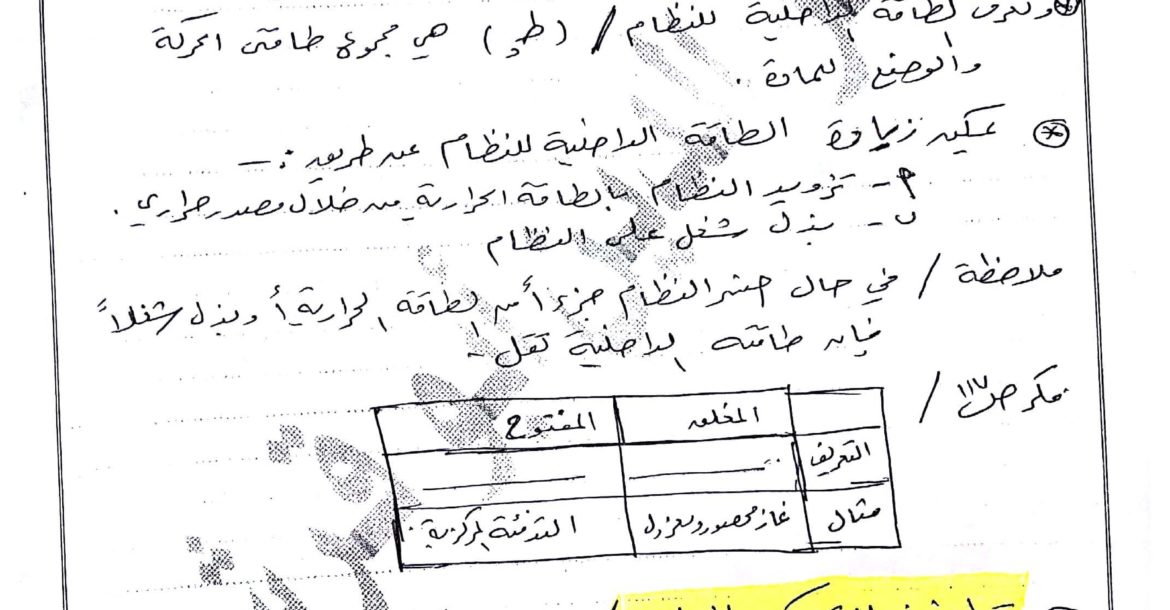 وتعرف الطاقة الداخلية للنظام / (طد) هي مجموع طاقتي الحركة
والوضع للمادة .
يمكن زيادة الطاقة الداخلية للنظام عن طريق :-
أ- تزويد النظام بالطاقة الحرارية من خلال مصدر حراري .
ب- بذل شغل على النظام
ملاحظة / في حال خسر النظام جزءاً من الطاقة الحرارية أو بذل شغلاً
فإن طاقته الداخلية تقل .
فكر ص١١٧ /
المغلق المفتوح
التعريف
مثال غاز محصور ومعزول التدفئة المركزية